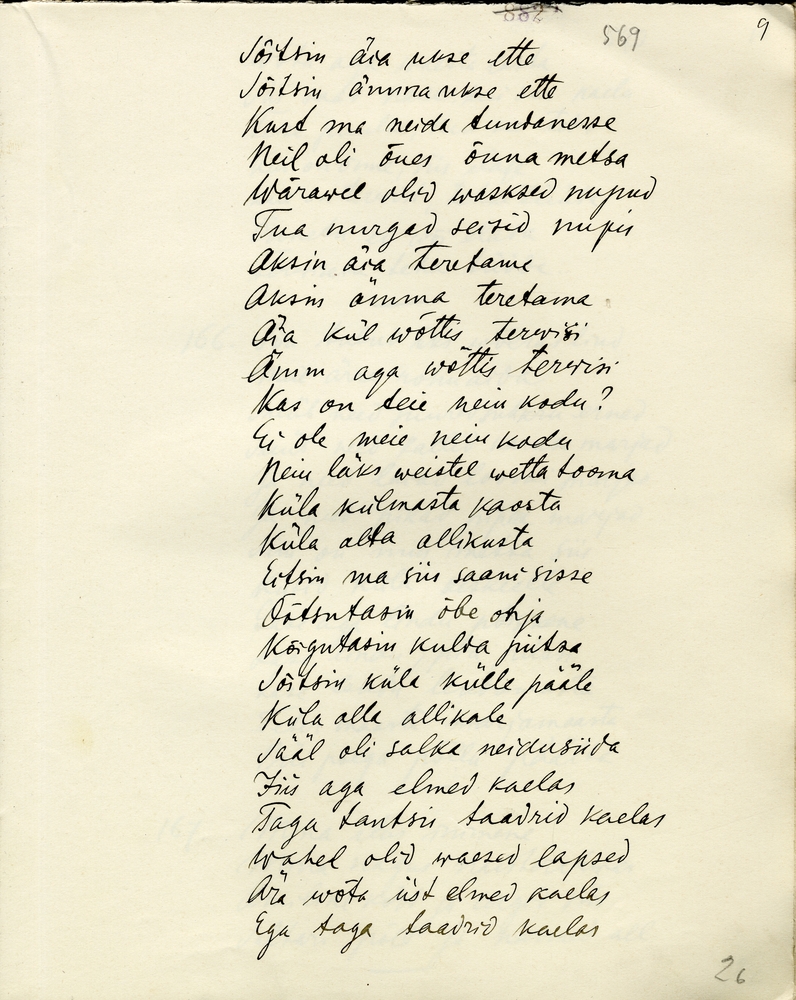 569
9
Sõitsin äia ukse ette
Sõitsin ämma ukse ette
Kust ma neida tundanesse
Neil oli õues õuna metsa
Wärawel olid wasksed nupud
Tua nurgad seisid nupis
Aksin äia teretame
Aksin ämma teretama
Äia kül wõttis terwisi
Ämm aga wõttis terwisi
Kas on teie nein kodu?
Ei ole meie nein kodu
Nein läks weistel wetta tooma
Küla külmasta kaosta
Küla alta allikusta
Eitsin ma siis saani sisse
Õõtsutasin õbe ohja
Kõigutasin kulda piitsa
Sõitsin küla külle pääle
Küla alla allikale
Sääl oli salka neidusiida
Iis aga elmed kaelas
Taga tantsis taadrid kaelas
Wahel olid waesed lapsed
Ära wõta iist elmed kaelas
Ega taga taadrid kaelas
26